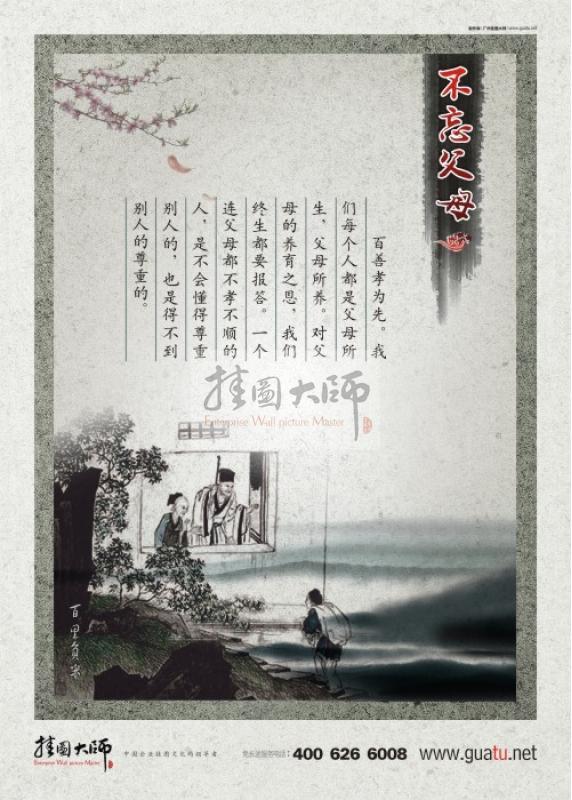 不忘父母
百善孝为先。我
们每个人都是父母所
生，父母所养。对父
母的养育之恩，我们
终生都要报答。一个
连父母都不孝不顺的
人，是不会懂得尊重
别人的，也是得不到
别人的尊重的。
挂图大师
Enterprise Wall picture Master
百里负米
挂图大师
Enterprise Wall picture Master
中国企业挂图文化的领导者
免长途服务电话：400 626 6008
www.guatu.net